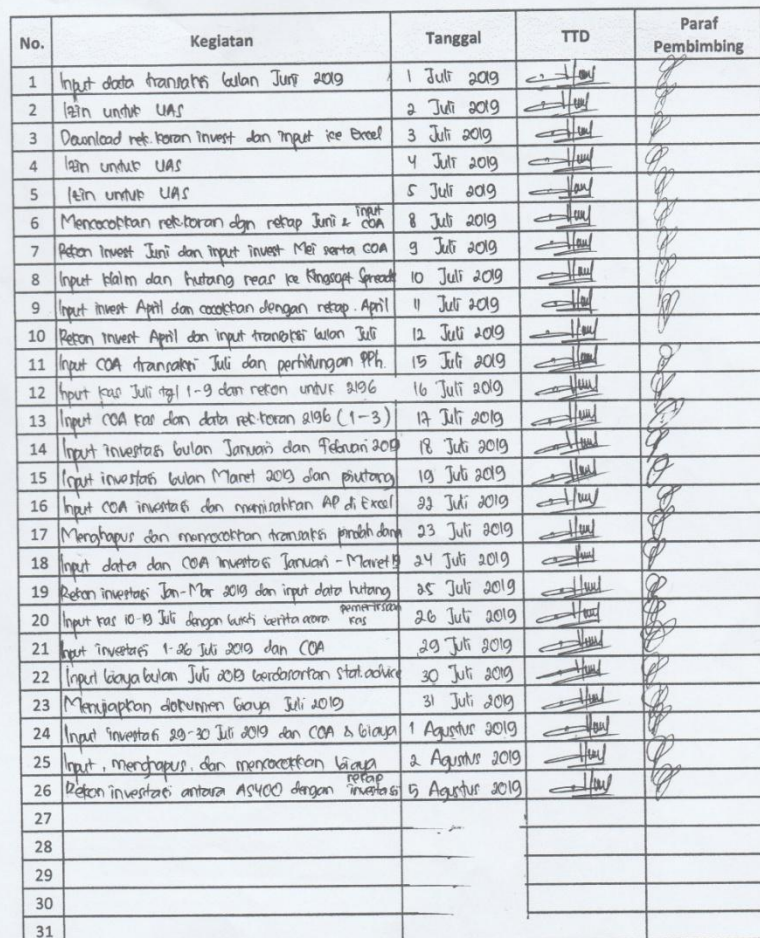 No. Kegiatan Tanggal TTD Paraf Pembimbing
1 Input data transaksi bulan Juni 2019 1 Juli 2019
2 Izin untuk UAS 2 Juli 2019
3 Download rek. koran invest dan input ke Excel 3 Juli 2019
4 Izin untuk UAS 4 Juli 2019
5 Izin untuk UAS 5 Juli 2019
6 Mencocokkan rek.koran dgn rekap Juni & input COA 8 Juli 2019
7 Rekon invest Juni dan input invest Mei serta COA 9 Juli 2019
8 Input klaim dan hutang reas ke Kingsoft Spreads 10 Juli 2019
9 Input invest April dan cocokkan dengan rekap April 11 Juli 2019
10 Rekon invest April dan input transaksi bulan Juli 12 Juli 2019
11 Input COA transaksi Juli dan perhitungan PPh. 15 Juli 2019
12 Input kas Juli tgl 1-9 dan rekon untuk 2196 16 Juli 2019
13 Input COA kas dan data rek.koran 2196 (1-3) 17 Juli 2019
14 Input investasi bulan Januari dan Februari 2019 18 Juli 2019
15 Input investasi bulan Maret 2019 dan piutang 19 Juli 2019
16 Input COA investasi dan memisahkan AP di Excel 22 Juli 2019
17 Menghapus dan mencocokkan transaksi pindah dana 23 Juli 2019
18 Input data dan COA investasi Januari - Maret 19 24 Juli 2019
19 Rekon investasi Jan-Mar 2019 dan input data hutang 25 Juli 2019
20 Input kas 10-19 Juli dengan bukti berita acara pemeriksaan kas 26 Juli 2019
21 Input investasi 1-26 Juli 2019 dan COA 29 Juli 2019
22 Input biaya bulan Juli 2019 berdasarkan stat.advice 30 Juli 2019
23 Menyiapkan dokumen biaya Juli 2019 31 Juli 2019
24 Input investasi 29-30 Juli 2019 dan COA & biaya 1 Agustus 2019
25 Input, menghapus, dan mencocokkan biaya 2 Agustus 2019
26 Rekon investasi antara AS400 dengan rekap investasi 5 Agustus 2019
27
28
29
30
31